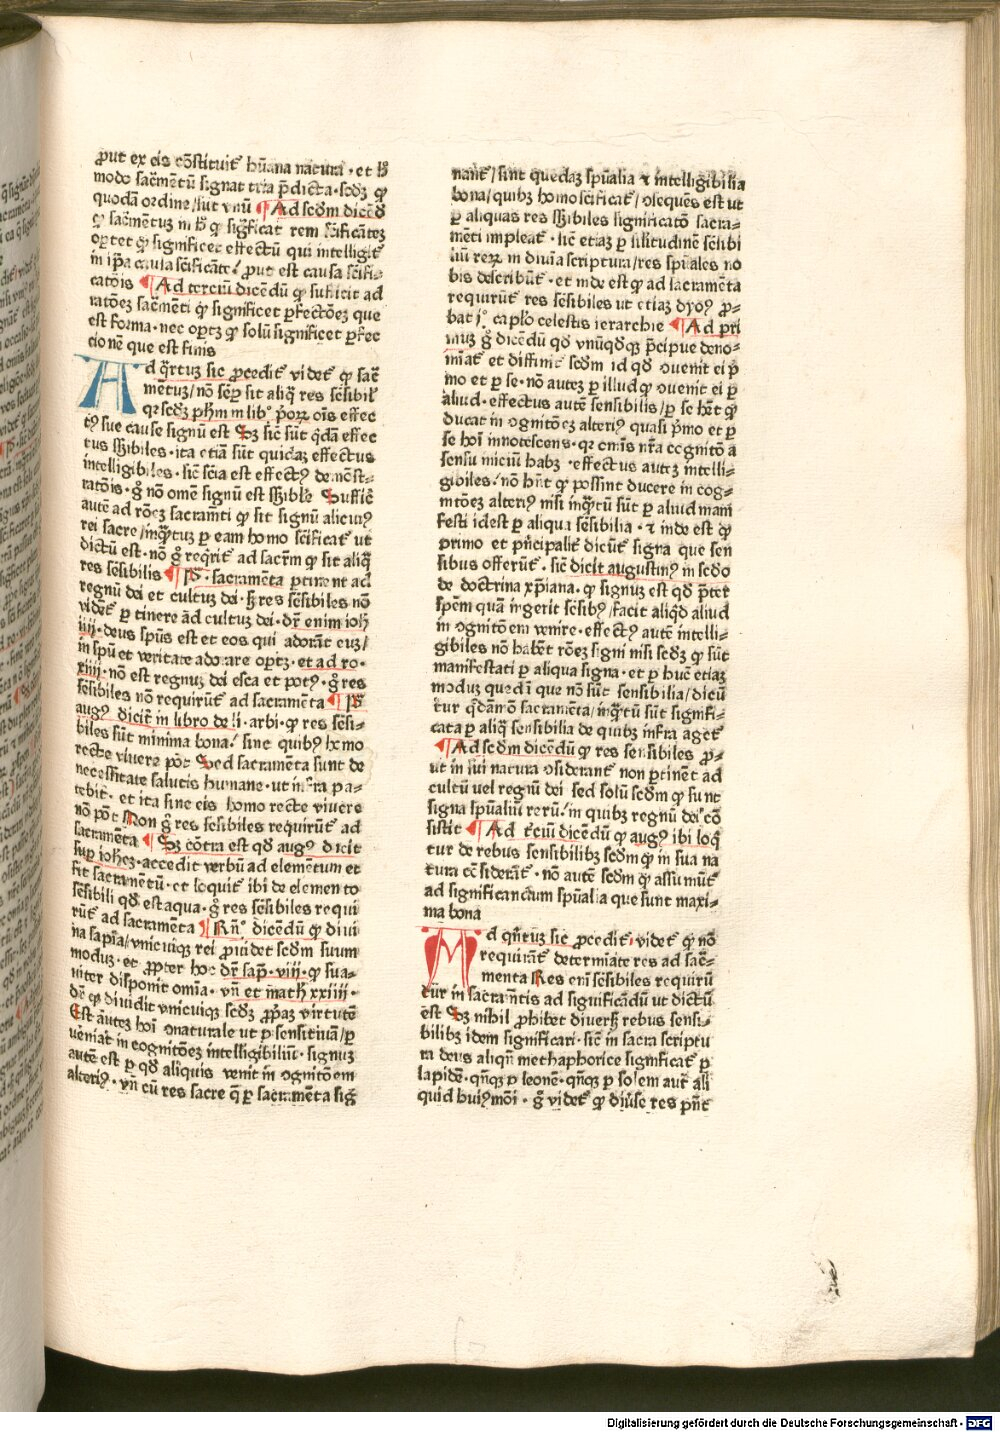 ꝓut ex eis cōstituit̄ hūana natura · et h̄
modo sac̄mētū signat tria p̄dicta · scd̄z ꝙ
quodā ordine / sūt vnū ¶ Ad scd̄m dicēd̄
ꝙ sac̄mētuꝫ in h̄ ꝙ sig̃ficat rem sc̄ificāteꝫ
oꝑtet ꝙ significet effectū qui intelligit̄
in ip̄a causa sc̄ificāte / ꝓut est causa sc̄ifi-
catōis ¶ Ad terciū dicēdū ꝙ sufficit ad
ratōeꝫ sac̄mēti ꝙ significet ꝑfectōeꝫ que
est forma · nec oꝑtꝫ ꝙ solū significet ꝑfec
tionē que est finis
Ad q̄rtuꝫ sic ꝓcedit̄ videt̄ ꝙ sac̄
mētuꝫ / nō sēꝑ sit aliq̄ res sēsibil̄
qꝛ scd̄ꝫ ph̄m in lib° p̄oꝝ ois effec
tꝰ sue cause signū est Sꝫ sic̄ sūt q̄dā effec
tus sn̄sibiles · ita etiā sūt quidaꝫ effectus
intelligibiles · sic̄ sc̄ia est effectꝰ demōst-
ratōis · g̊ nō omē signū est sn̄sibile Suffic̄
autē ad rōeꝫ sacram̄ti ꝙ sit signū alicuiꝰ
rei sacre / inq̄tuꝫ ꝑ eam homo sc̄ificat̄ ut
dictū est · nō g̊ reqrit̄ ad sacr̄m ꝙ sit aliq̄
res sēsibilis ¶ P̄ · sacramēta ꝑtinent ad
regnū dei et cultuꝫ dei · h̄ res sēsibiles nō
videt̄ ꝑtinere ad cultuꝫ dei · dr̄ enim ioh̄
iiij · deus spūs est et eos qui adorāt euꝫ /
in spū et veritate adorare oꝑtꝫ · et ad ro ·
xiiij · nō est regnuꝫ dei esca et potꝰ · g̊ res
sēsibiles nō requirūt̄ ad sacramēta ¶ P̄
augꝰ dicit̄ in libro de li · arbi · ꝙ res sēsi-
biles sūt minima bona / sine quibꝰ homo
recte viuere pōt Sed sacramēta sunt de
necessitate salutis humane · ut infra pa-
tebit · et ita sine eis homo recte viuere
nō pōt Non g̊ res sēsibiles requirūt̄ ad
sacramēta ¶ Sꝫ cōtra est qd̄ augꝰ dicit
suꝑ ioh̄eꝫ · accedit verbū ad elementum et
fit sacramētū · et loquit̄ ibi de elemento
sēsibili qd̄ est aqua · g̊ res sēsibiles requi
rūt̄ ad sacramēta ¶ Rn̄° dicēdū ꝙ diui
na sapīa / vnicuiqꝫ rei ꝓuidet scd̄m suum
moduꝫ · et ꝓpter hoc dr̄ sap̄ · viij · ꝙ sua-
uiter disponit omīa · vn̄ et math̄ xxiiij ·
dr̄ ꝙ diuidit vnicuiqꝫ scd̄ꝫ ꝓp̄aꝫ virtutē
Est autēꝫ hoī ↄnaturale ut ꝑ sensitiuā / ꝑ
ueniat in cognitōeꝫ intelligibiliū · signuꝫ
autē est ꝑ qd̄ aliquis venit in ↄgnitōem
alteriꝰ · vn̄ cū res sacre q̄ ꝑ sacramēta sig̃
nant̄ / sint quedaꝫ spūalia ⁊ intelligibilia
bona / quibꝫ homo sc̄ificat̄ / ↄsequēs est ut
ꝑ aliquas res sn̄sibiles significatō sacra-
mēti impleat̄ · sic̄ etiaꝫ ꝑ sil̄itudinē sēsibi
liū reꝝ in diuīa scriptura / res spūales no
bis describūt̄ · et inde est ꝙ ad sacramēta
requirūt̄ res sēsibiles ut etiaꝫ dyoꝰ ꝓ-
bat j° capl̄o celestis ierarchie ¶ Ad pri
muꝫ g̊ dicēdū qd̄ vnūqd̄qꝫ p̄cipue deno-
miat̄ et diffinit̄ scd̄m id qd̄ ↄuenit ei p̄
mo et ꝑ se · nō auteꝫ ꝑ illud ꝙ ↄuenit ei ꝑ
aliud · effectus autē sensibilis / ꝑ se hēt ꝙ
ducat in ↄgnitōeꝫ alteriꝰ quasi p̄mo et ꝑ
se hoī innotescens · qꝛ omīs nr̄a cognitō a
sensu iniciū habꝫ · effectus auteꝫ intelli-
gibiles / nō hn̄t ꝙ possint ducere in cog-
nitōeꝫ alteriꝰ nisi inq̄tū sūt ꝑ aliud mani
festi idest ꝑ aliqua sēsibilia · ⁊ inde est ꝙ
primo et p̄ncipalit̄ dicūt̄ signa que sen
sibus offerūt̄ · sic̄ dicit augustinꝰ in scd̄o
de doctrina xp̄iana · ꝙ signuꝫ est qd̄ p̄ter
spēm quā ingerit sēsibꝰ / facit aliqd̄ aliud
in ↄgnitōem venire · effectꝰ autē intelli-
gibiles nō habēt rōeꝫ signi nisi scd̄ꝫ ꝙ sūt
manifestati ꝑ aliqua signa · et ꝑ hūc etiaꝫ
moduꝫ quedā que nō sūt sensibilia / dicū
tur q̄dāmō sacramēta / inq̄tū sūt signifi-
cata ꝑ aliq̄ sensibilia de quibꝫ infra aget̄
¶ Ad scd̄m dicēdū ꝙ res sensibiles ꝓ-
ut in sui natura ↄsiderant̄ non ꝑtinēt ad
cultū uel regnū dei sed solū scd̄m ꝙ sunt
signa spūaliū rerū / in quibꝫ regnū dei cō
sistit ¶ Ad t̄ciū dicēdū ꝙ augꝰ ibi loq̄
tur de rebus sensibilibꝫ scd̄m ꝙ in sua na
tura cōsiderāt̄ · nō autē scd̄m ꝙ assumūt̄
ad significandum spūalia que sunt maxi-
ma bona
Ad qn̄tuꝫ sic ꝓcedit̄ · videt̄ ꝙ nō
requirāt̄ determīate res ad sac̄-
menta Res enī sēsibiles requirū
tur in sacram̄tis ad significādū ut dictū
est Sꝫ nihil ꝓhibet diuers̄ rebus sensi-
bilibꝫ idem significari · sic̄ in sacra scriptu
ra deus aliqn̄ methaphorice significat̄ ꝑ
lapidē · qn̄qꝫ ꝑ leonē · qn̄qꝫ ꝑ solem aut ali
quid huiꝰmōi · g̊ videt̄ ꝙ diūse res pn̄t
Digitalisierung gefördert durch die Deutsche Forschungsgemeinschaft - DFG